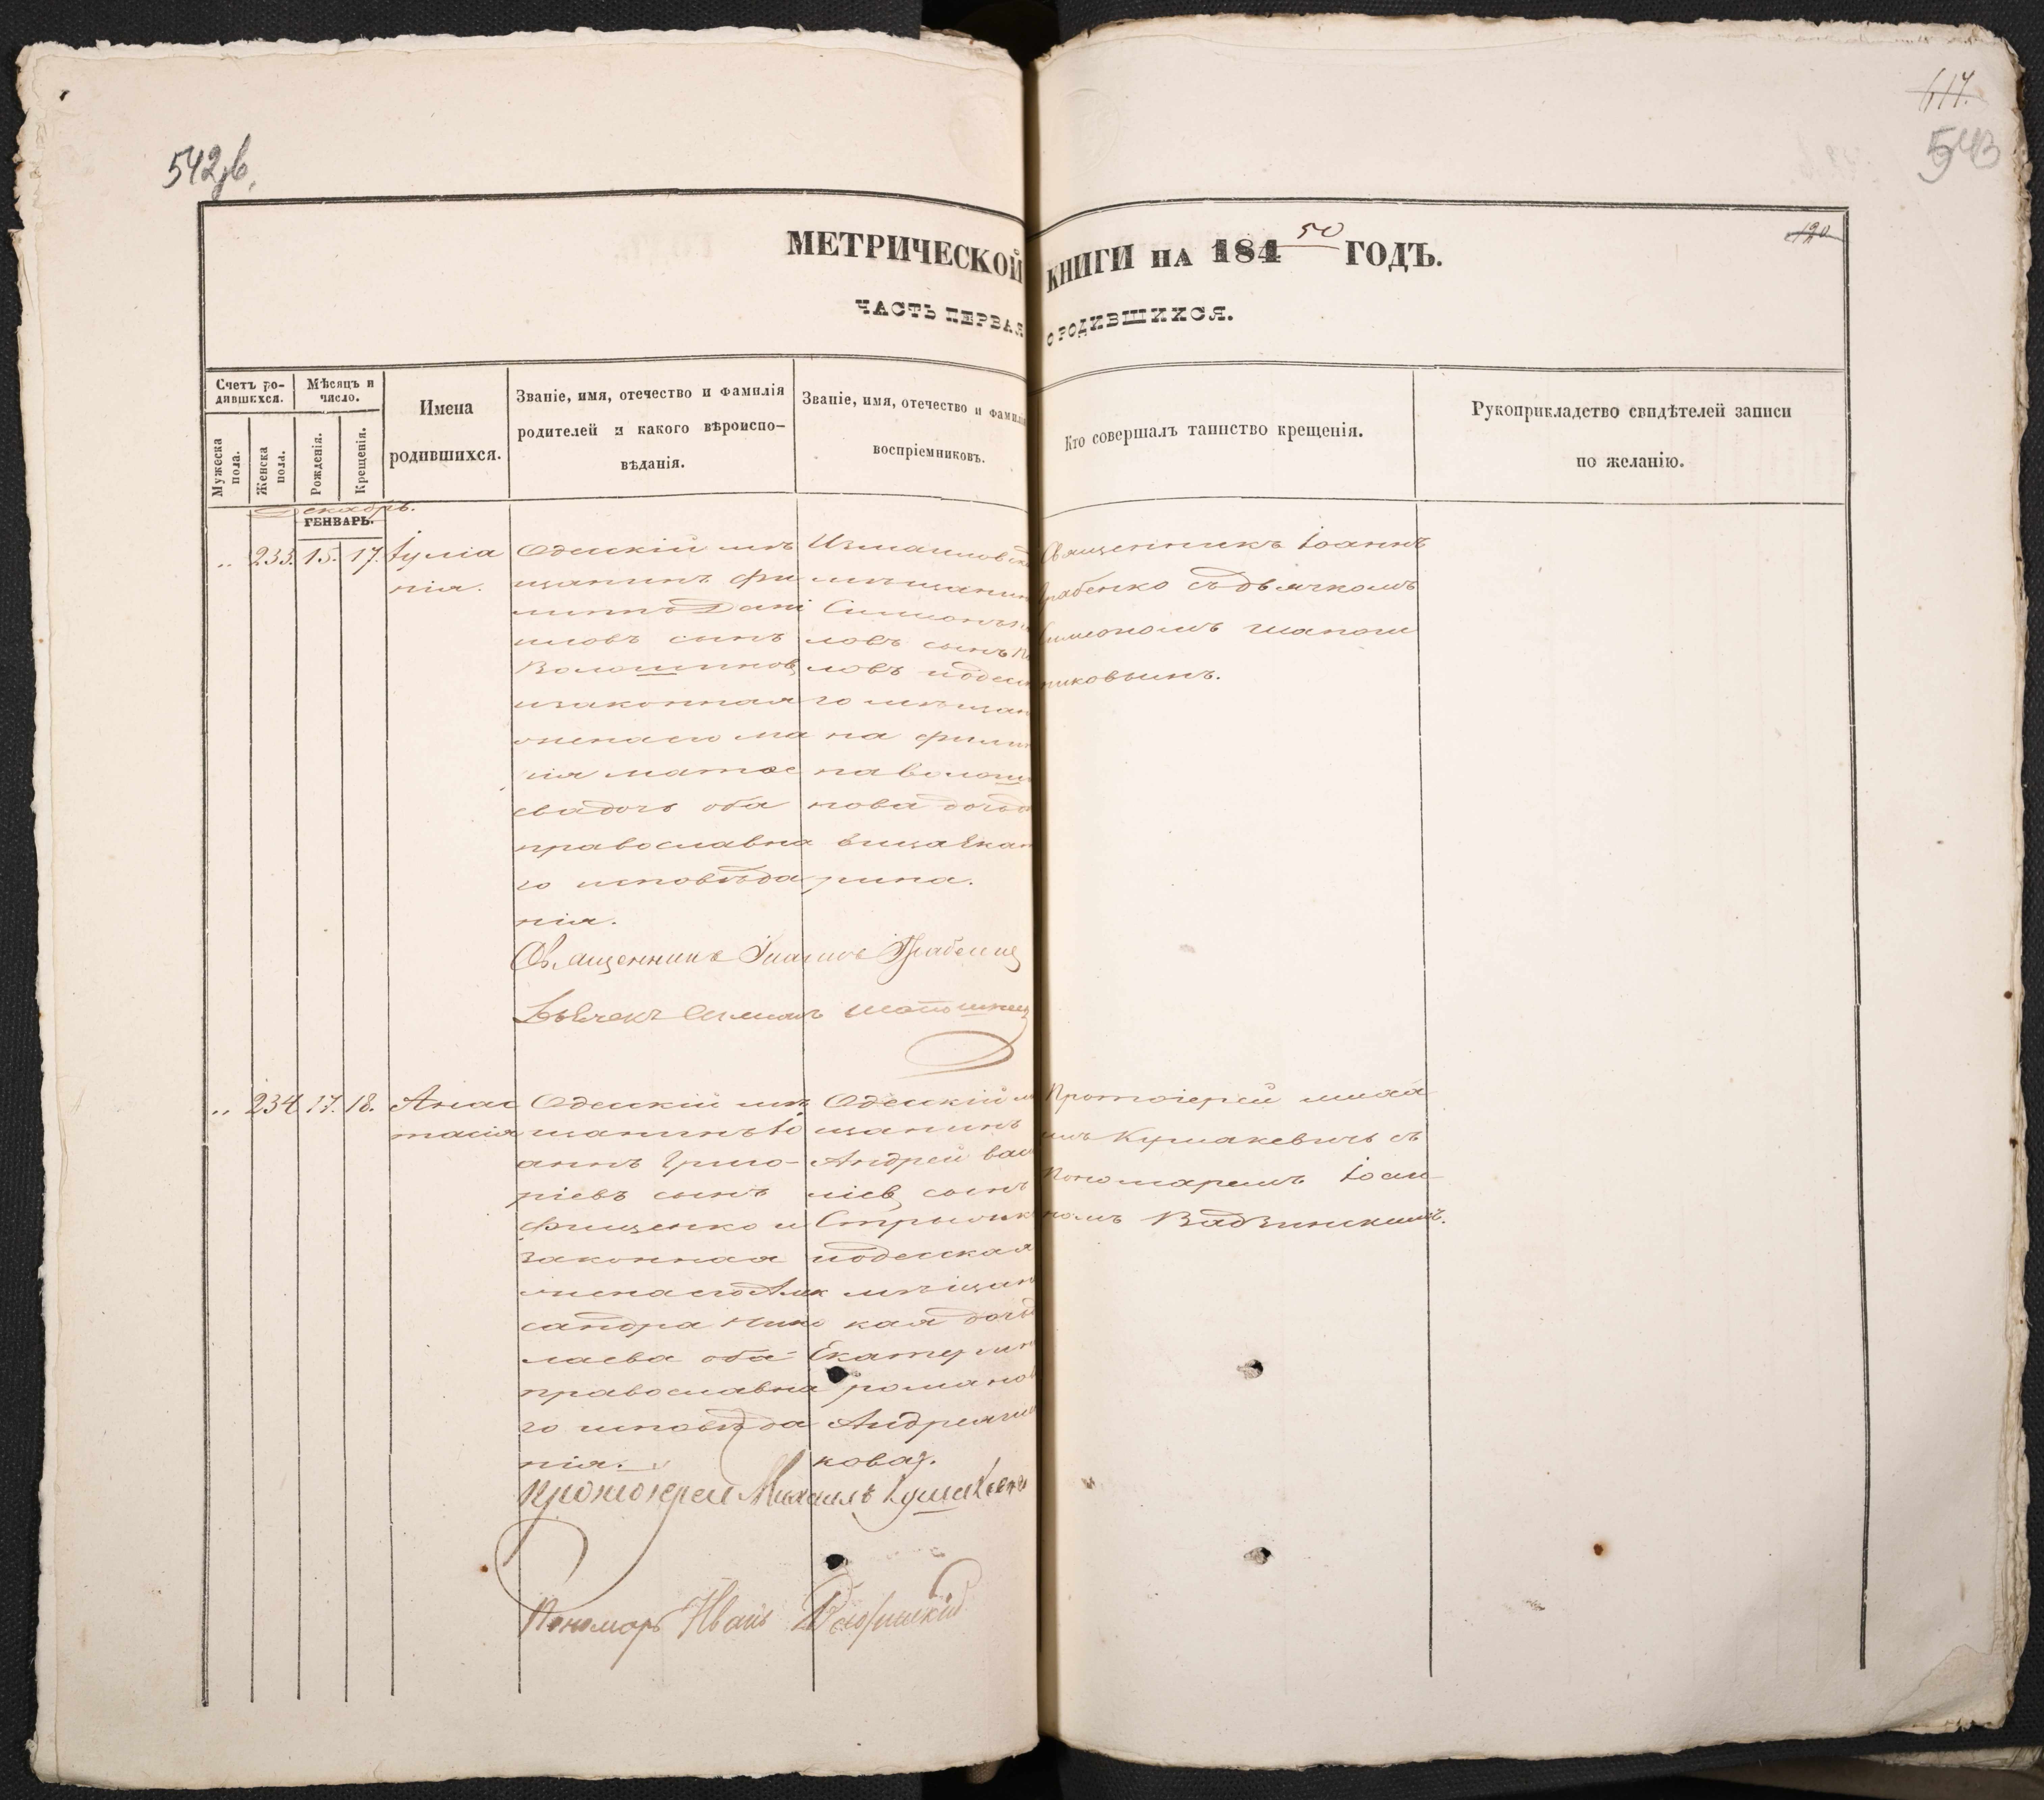 542 зв.
117.
543
120
МЕТРИЧЕСКОЙ КНИГИ НА 184 50 ГОДЪ.
ЧАСТЬ ПЕРВАЯ О РОДИВШИХСЯ.
Счетъ ро-
дившихся.
Мужеска
пола.
Женска
пола.
Мѣсяцъ и
число.
Рожденія.
Крещенія.
Имена
родившихся.
Званіе, имя, отечество и фамилія
родителей и какого вѣроиспо-
вѣданія.
Званіе, имя, отечество и фамилія
воспріемниковъ.
Кто совершалъ таинство крещенія.
Рукоприкладство свидѣтелей записи
по желанію.
Декабрь.
ГЕНВАРЬ.
„ 233. 15. 17.
Іуліа
нія.
Одесскій мѣ
щанинъ Фи
липпъ Дані
иловъ сынъ
Волошиновъ
изаконная
жена его Ма
рія Матѳе
ева дочь оба
православна
го исповѣда
нія.
Измаиловск
мѣщанин
Симеонъ
ловъ сынъ
ловъ иодесс
го мѣщан
на Филип
па Волоши
нова дочь д
ѣвица Екат
рина.
Священникъ Іоаннъ
Грабенко съ дьячкомъ
Симеономъ Шапош
никовымъ.
Священникъ Іоаннъ Грабенко
Дьячекъ Симеонъ Шапошнико
„ 234 17. 18.
Анас
тасія
Одесскій мѣ
щанинъ Іо
аннъ Григо-
ріевъ сынъ
Фищенко и
законная
жена его Алек
сандра Нико
лаева оба
православна
го исповѣда
нія.
Одесскій м
щанинъ
Андрей Васи
ліев сынъ
иодесская
мѣщан
кая дочь
Екатерин
Романов
Андреячи
кова.
Протоіерей Миха
илъ Кушакевичъ съ
Пономаремъ Іоан-
номъ
Протоіерей Михаилъ Кушакевичъ
Пономарь Иванъ